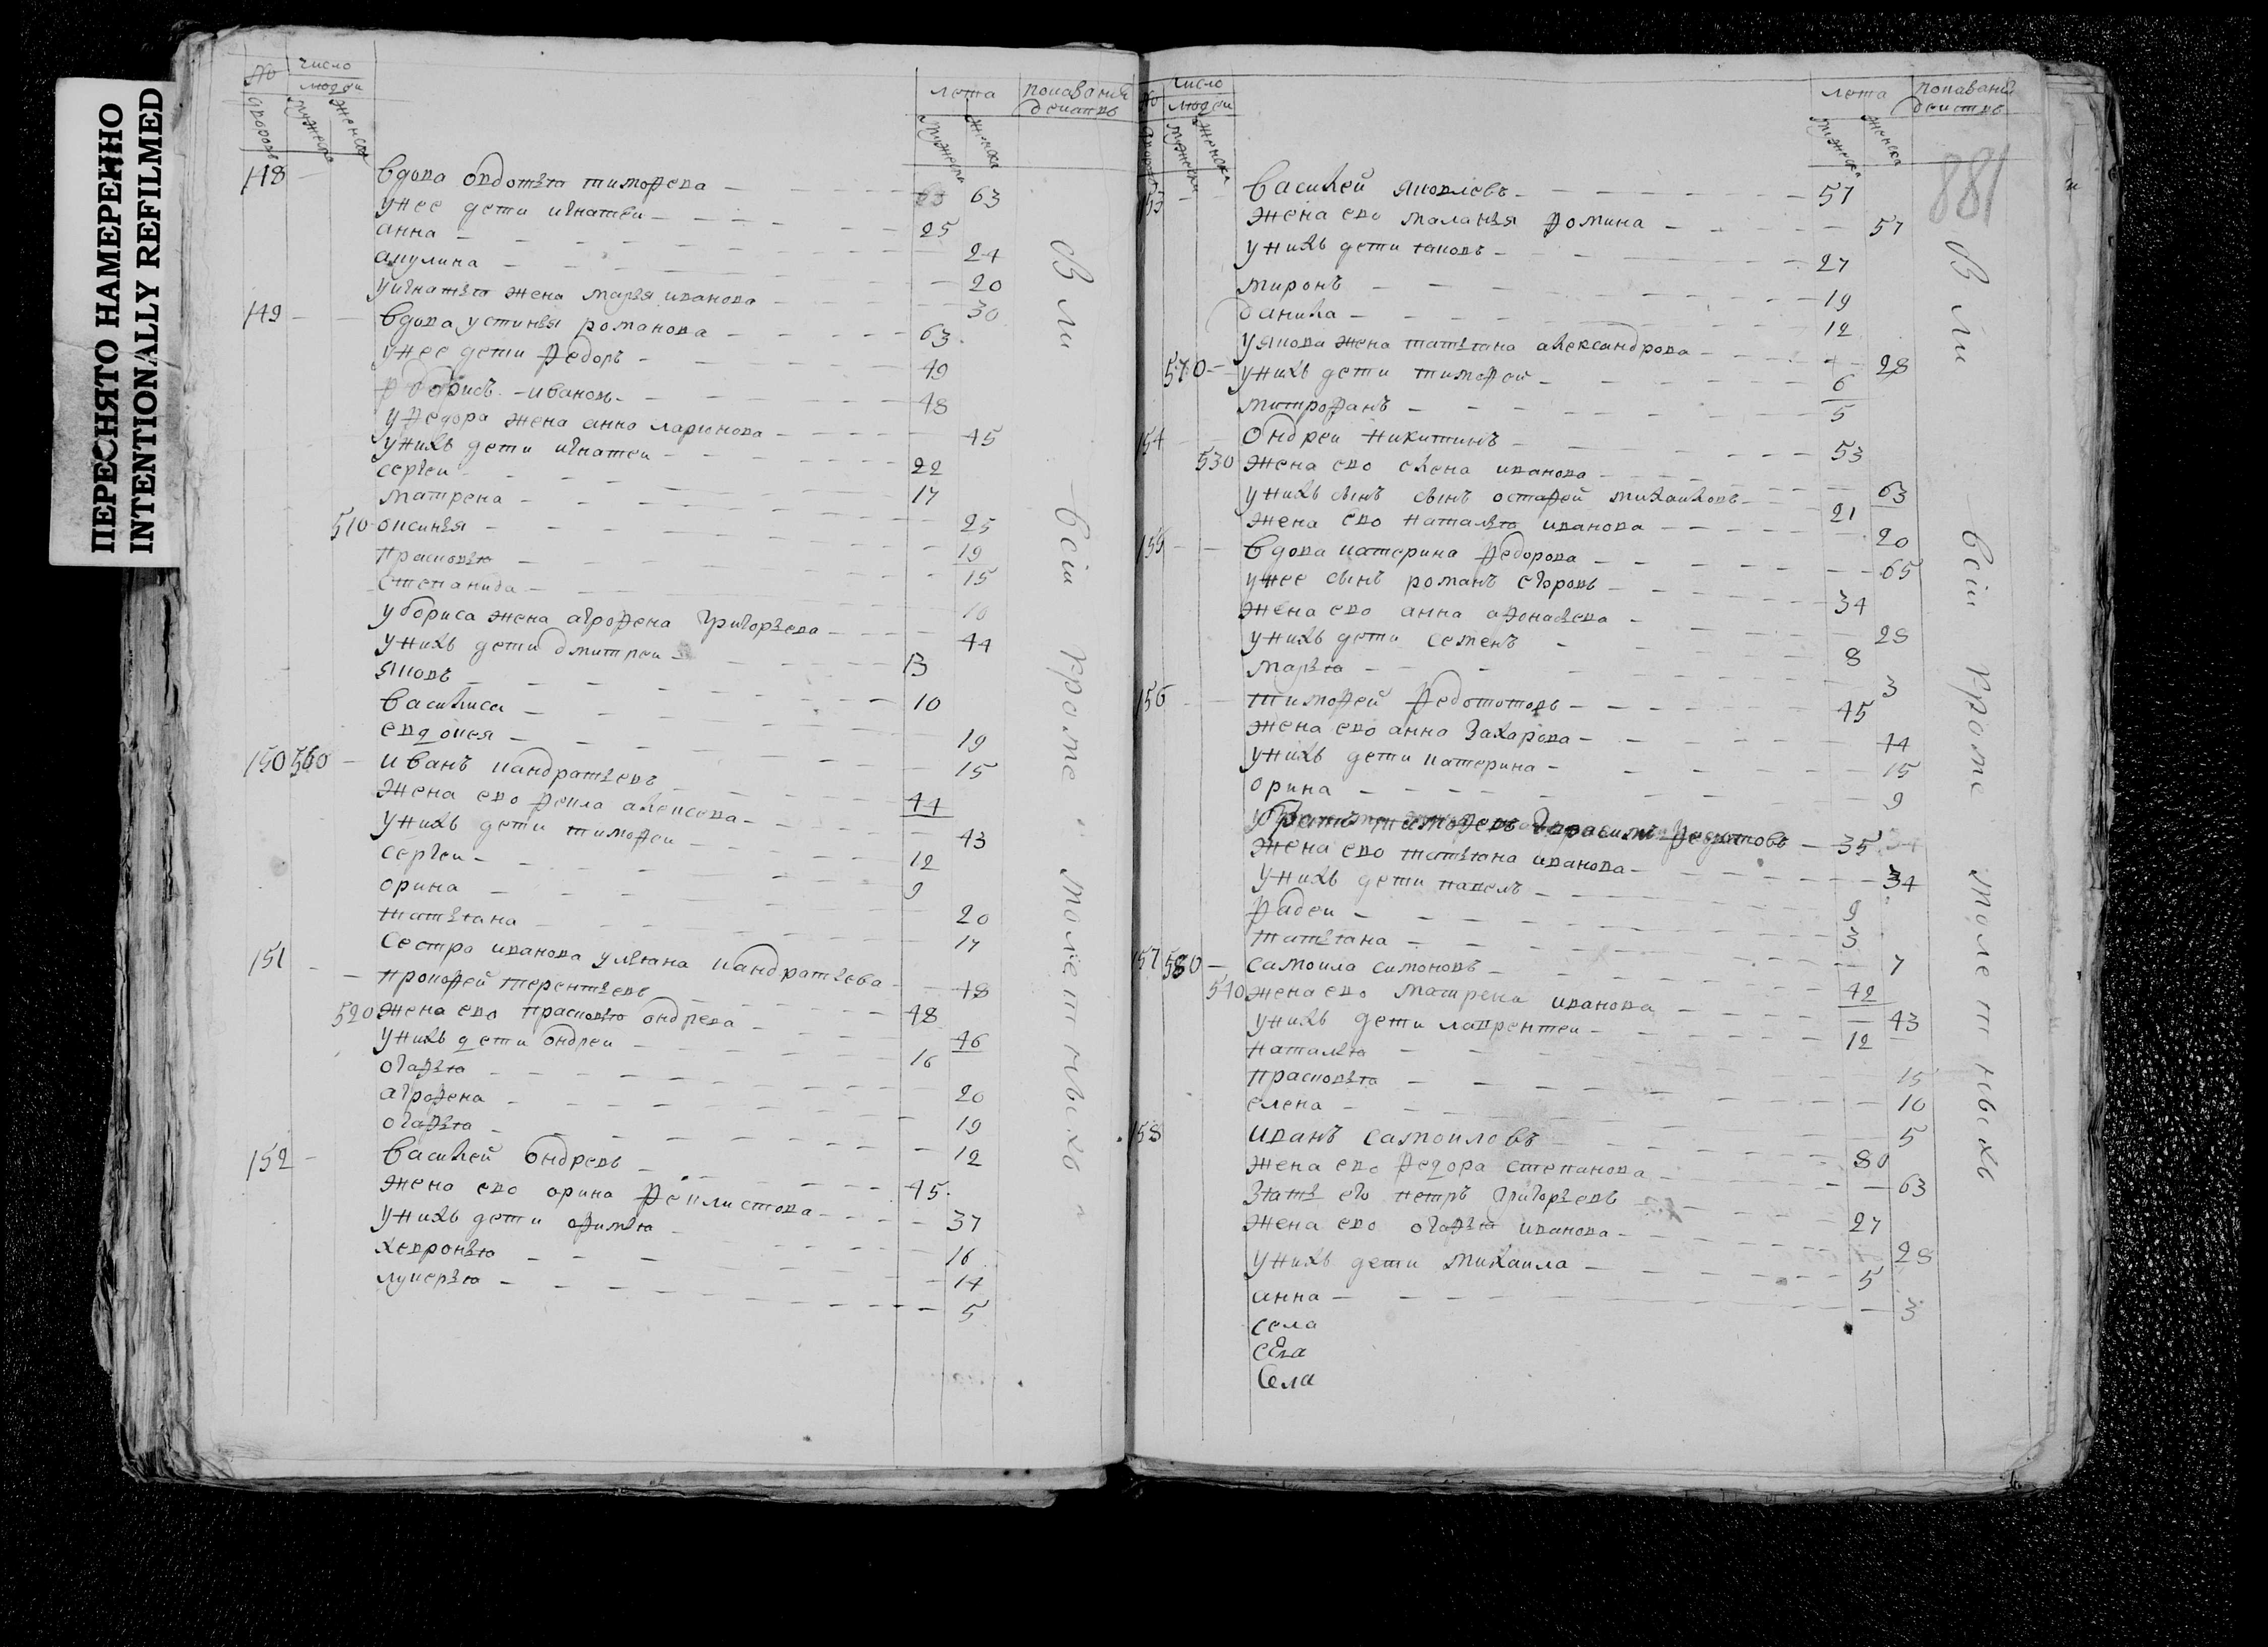 ПЕРЕСНЯТО НАМЕРЕННО
INTENTIONALLY REFILMED
№ число
людеи
дворовъ мужеска женска
лета
мужеска женска
148 вдова овдотья тимофева 63
унее дети игнатеи 25
анна 24
акулина 20
уигнатья жена марья иванова 30
149 вдова устинья романова 63
унее дети федоръ 49
борисъ ивановъ 48
уфедора жена анна ларионова 45
унихъ дети игнатеи 22
сергеи 17
матрена 25
510 оксинья 19
прасковья 15
степанида 10
убориса жена агрофена григорьева 44
унихъ дети дмитреи 13
яковъ 10
василиса 19
евдокея 15
150 560 иванъ кандратьевъ 44
жена ево фекла алексева 43
унихъ дети тимофеи 12
сергеи 9
орина 20
татьяна 17
сестра иванова ульяна кандратьева 48
151 прокофей терентьевъ 48
520 жена ево прасковья ондрева 46
унихъ дети ондреи 16
огафья 20
агрофена 19
огафья 12
152 василей ондревъ 45
жена ево орина феклистова 37
унихъ дети офимья 16
хевронья 14
лукерья 5
вси кроме малетныхъ
число
людеи
мужеска женска
лета
мужеска женска
188
153 василей яковлевъ 57
жена ево маланья фомина 57
унихъ дети яковъ 27
миронъ 19
данила 12
уякова жена татьяна александрова 28
570 унихъ дети тимофеи 6
митрофанъ 5
154 ондреи никитинъ 53
530 жена ево елена иванова 63
унихъ сынъ сынъ остафей михаиловъ 21
жена ево наталья иванова 20
155 вдова катерина федорова 65
унее сынъ романъ егоровъ 34
жена ево анна афонасьева 28
унихъ дети семенъ 8
марья 3
156 тимофей федототовъ 45
жена ево анна захарова 44
унихъ дети катерина 15
орина 9
братъ тимофеевъ герасимъ федотовъ 35
жена ево татьяна иванова 34
унихъ дети павелъ 9
фадеи 3
татьяна 7
157 580 самоила симоновъ 42
540 жена ево матрена иванова 43
унихъ дети лаврентеи 12
наталья 15
прасковья 10
елена 5
158 иванъ самоиловъ 80
жена ево федора степанова 63
зять его петръ григорьевъ 27
жена ево огафья иванова 28
унихъ дети михаила 5
анна 3
села
села
села
вси кроме малетныхъ